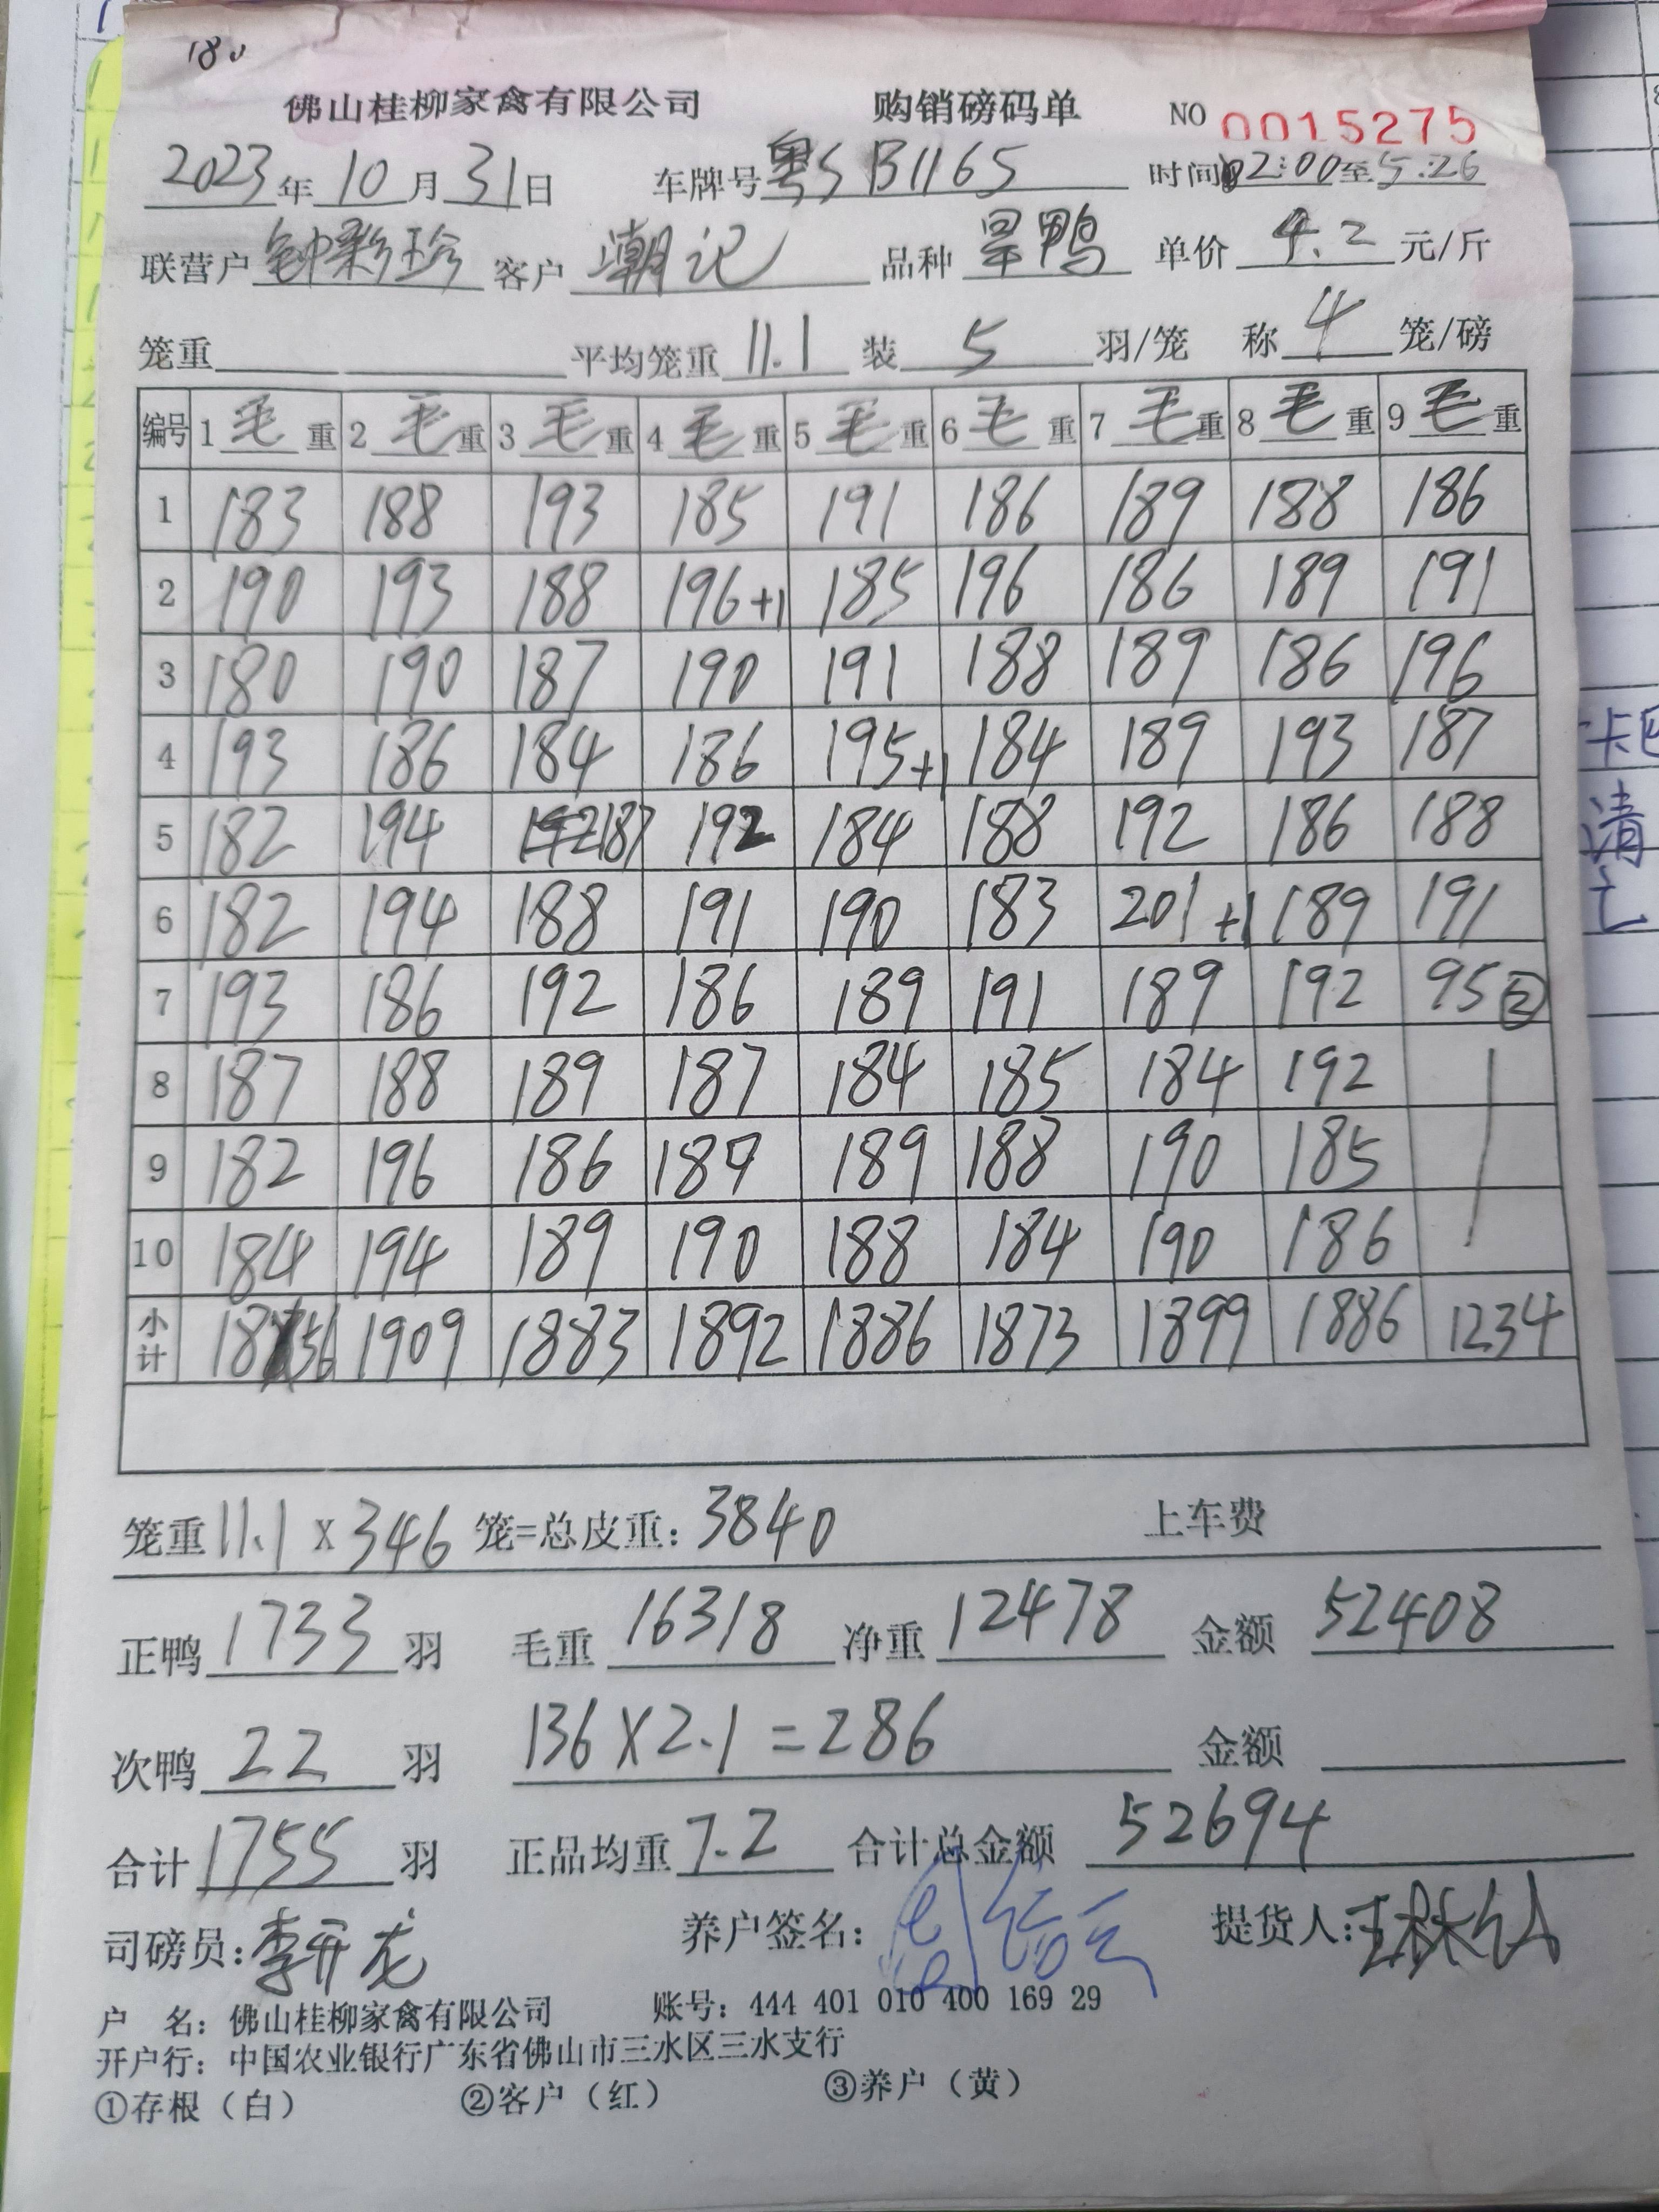 180
佛山桂柳家禽有限公司 购销磅码单 NO 0015275
2023年10月31日 车牌号粤SB1165 时间02:00至5:26
联营户钟彩珍 客户潮记 品种旱鸭 单价4.2元/斤
笼重 平均笼重11.1 装5羽/笼 称4笼/磅
编号 1毛重 2毛重 3毛重 4毛重 5毛重 6毛重 7毛重 8毛重 9毛重
1 183 188 193 185 191 186 189 188 186
2 190 193 188 196+1 185 196 186 189 191
3 180 190 187 190 191 188 189 186 196
4 193 186 184 186 195+1 184 189 193 187
5 182 194 187 192 184 188 192 186 188
6 182 194 188 191 190 183 201+1 189 191
7 193 186 192 186 189 191 189 192 95②
8 187 188 189 187 184 185 184 192
9 182 196 186 189 189 188 190 185
10 184 194 189 190 188 184 190 186
小计 1856 1909 1883 1892 1886 1873 1899 1886 1234
笼重11.1×346笼=总皮重:3840 上车费
正鸭1733羽 毛重16318 净重12478 金额52408
次鸭22羽 136×2.1=286 金额
合计1755羽 正品均重7.2 合计总金额52694
司磅员:李开龙 养户签名: 提货人:
户 名:佛山桂柳家禽有限公司 账号:444 401 010 400 169 29
开户行:中国农业银行广东省佛山市三水区三水支行
①存根(白) ②客户(红) ③养户(黄)
清